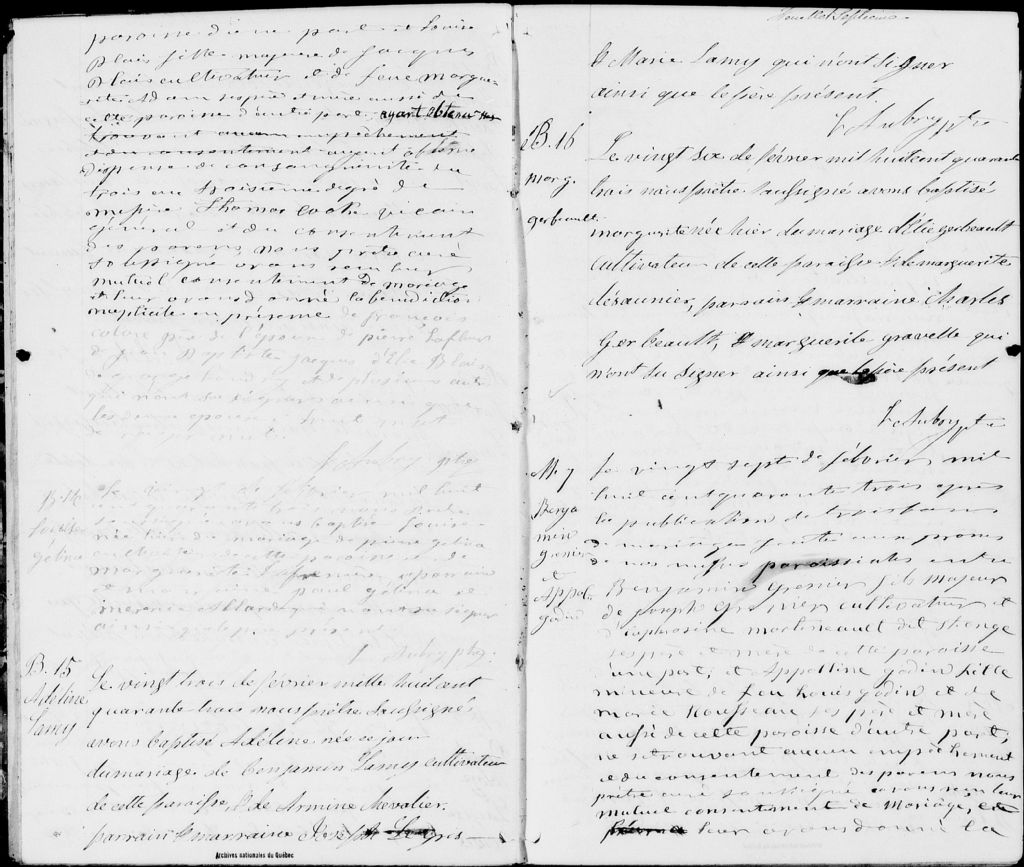 paroisse d'une part et Louise
Blais fille majeure de Jacques
Blais cultivateur et de feue Margue-
rite Adam ses père et mère aussi de
cette paroisse d'autre part, ayant obtenu
trouvant aucun empêchement
et du consentement ayant obtenu
Dispense de consanguinité du
trois au troisième degré de
messire Thomas Cooke vicaire
général et du consentement
des parens, nous prêtre curé
soussigné avons reçu leur
mutuel consentement de mariage
et leur avons donné la bénédiction
nuptiale en présence de François
père de l'épouse de pierre
de Jean Baptiste Jacques d'Elie Blais
de et de plusieurs autres
qui n'ont su signer ainsi que
les deux époux
L Aubry ptre
B. 14
Louise
gelina
Le vingt de février mil huit
cent quarante trois nous prêtre
soussigné avons baptisé Louise
née hier du mariage de pierre gelina
cultivateur de cette paroisse et de
marguerite parrain
et marraine paul gelina et
qui n'ont su signer
ainsi présent
L Aubry ptre
B. 15
Adéline
Lamy
Le vingt trois de février mille huit cent
quarante trois nous prêtre soussigné
avons baptisé Adéline née ce jour
du mariage de benjamin Lamy cultivateur
de cette paroisse, & de Armine Chevalier.
parrain & marraine
Archives nationales du Québec
& Marie Lamy qui n'ont su signer
ainsi que le père présent.
L Aubry ptre
B. 16
marg.
gerbeault
Le vingt six de février mil huit cent quarante
trois nous prêtre soussigné avons baptisé
marguerite née hier du mariage d'Elie gerbeault
cultivateur de cette paroisse & de marguerite
désaunier, parrain & marraine Charles
Gerbeault, & marguerite gravelle qui
n'ont su signer ainsi que le père présent
L Aubry ptre
M. 7
Benja
mine
grenier
et
Appol.
godin
Le vingt sept de février mil
huit cent quarante trois après
la publication de trois bans
de mariage faite aux prones
de nos messes paroissiales entre
Benjamine Grenier fils majeur
de joseph Grenier cultivateur et
d'Euphrosine martineault dit
ses père et mère de cette paroisse
d'une part, et Appolline godin fille
mineure de feu Louis godin et de
Marie Rousseau ses père et mère
aussi de cette paroisse d'autre part;
ne se trouvant aucun empêchement
et du consentement des parens nous
prêtre curé soussigné avons reçu leur
mutuel consentement de Mariage, et
leur avons donné la